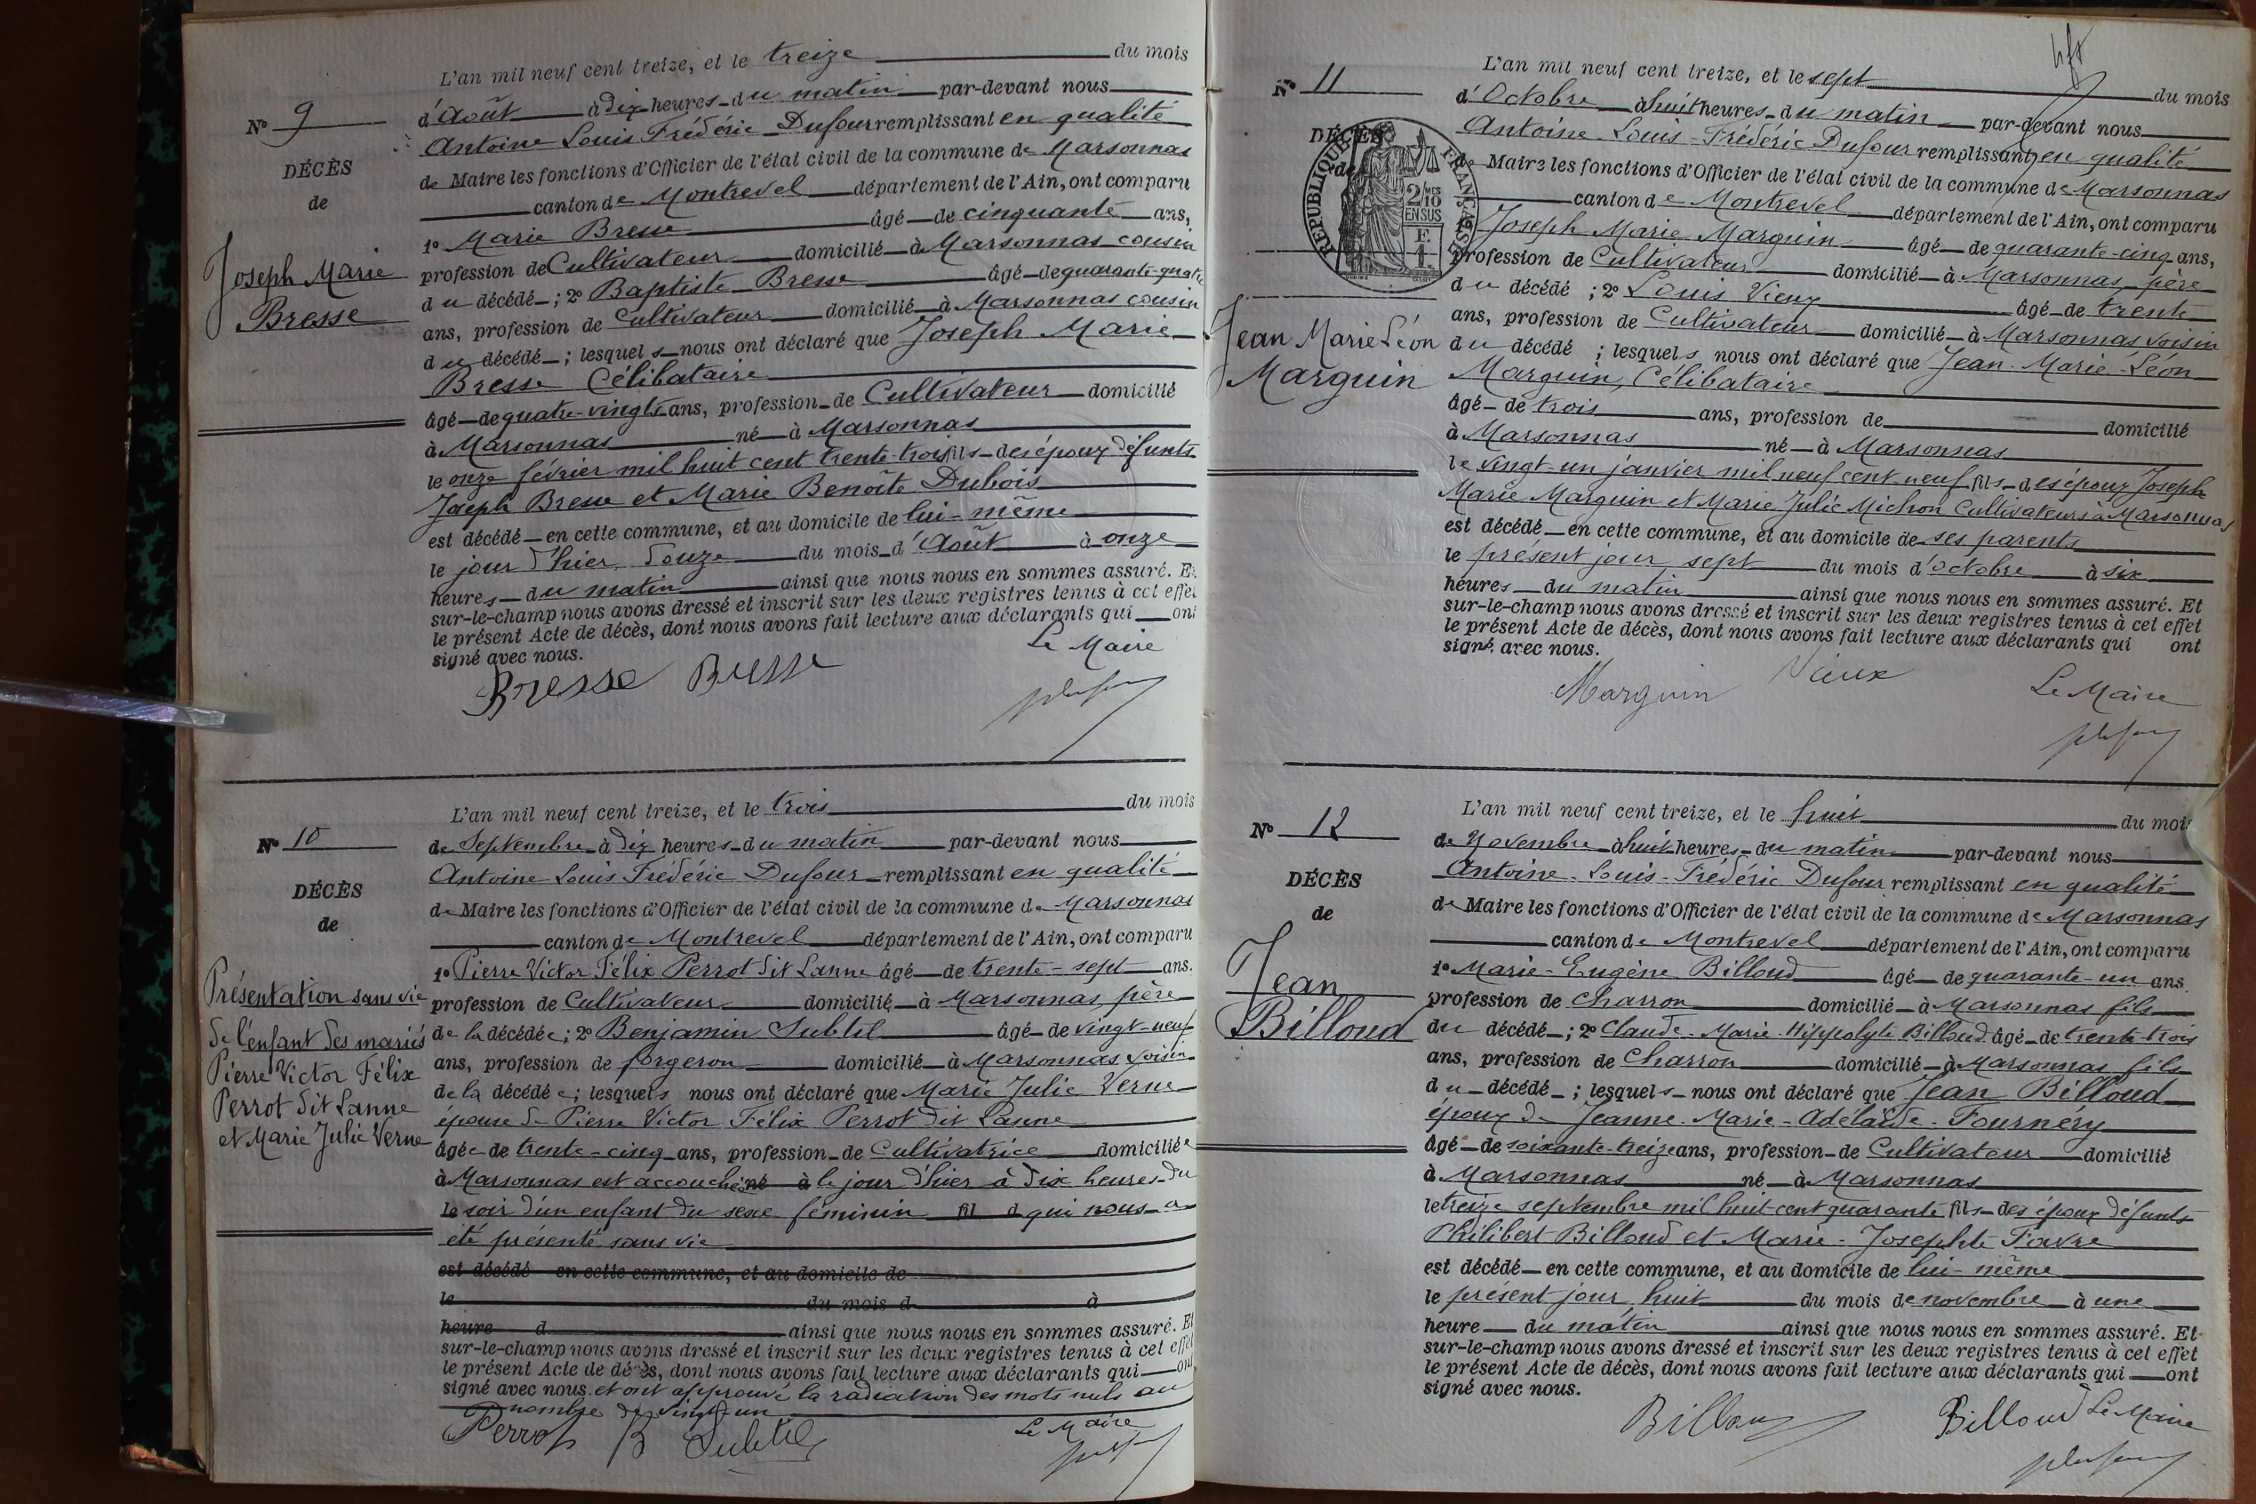 L'an mil neuf cent treize, et le treize du mois
N° 9
d'Août à dix heures du matin par-devant nous
Antoine Louis Frédéric Dufour remplissant en qualité
DÉCÈS
de Maire les fonctions d'Officier de l'état civil de la commune de Marsonnas
de
canton de Montrevel département de l'Ain, ont comparu
1° Marie Bresse âgé de cinquante ans,
Joseph Marie
profession de Cultivateur domicilié à Marsonnas cousin
du décédé ; 2° Baptiste Bresse âgé de quarante-quatre
Bresse
ans, profession de Cultivateur domicilié à Marsonnas cousin
du décédé ; lesquels nous ont déclaré que Joseph Marie
Bresse Célibataire
âgé de quatre-vingts ans, profession de Cultivateur domicilié
à Marsonnas né à Marsonnas
le onze février mil huit cent trente-trois fils des époux défunts
Joseph Bresse et Marie Benoîte Dubois
est décédé en cette commune, et au domicile de lui-même
le jour d'hier douze du mois d'Août à onze
heures du matin ainsi que nous nous en sommes assuré. Et
sur-le-champ nous avons dressé et inscrit sur les deux registres tenus à cet effet
le présent Acte de décès, dont nous avons fait lecture aux déclarants qui ont
signé avec nous.
Le Maire
Bresse Bresse
L'an mil neuf cent treize, et le trois du mois
N° 10
de Septembre à dix heures du matin par-devant nous
Antoine Louis Frédéric Dufour remplissant en qualité
DÉCÈS
de Maire les fonctions d'Officier de l'état civil de la commune de Marsonnas
de
canton de Montrevel département de l'Ain, ont comparu
1° Pierre Victor Félix Perrot dit Lanne âgé de trente-sept ans.
Présentation sans vie
profession de Cultivateur domicilié à Marsonnas père
de l'enfant des mariés
de la décédée ; 2° Benjamin Subtil âgé de vingt-neuf
Pierre Victor Félix
ans, profession de forgeron domicilié à Marsonnas voisin
Perrot dit Lanne
de la décédée ; lesquels nous ont déclaré que Marie Julie Verne
et Marie Julie Verne
épouse de Pierre Victor Félix Perrot dit Lanne
âgée de trente-cinq ans, profession de Cultivatrice domiciliée
à Marsonnas est accouchée né à le jour d'hier à dix heures du
le soir d'un enfant du sexe féminin fil d qui nous a
été présenté sans vie
est décédé en cette commune, et au domicile de
le du mois d à
heure d ainsi que nous nous en sommes assuré. Et
sur-le-champ nous avons dressé et inscrit sur les deux registres tenus à cet effet
le présent Acte de décès, dont nous avons fait lecture aux déclarants qui ont
signé avec nous. et ont approuvé la radiation des mots nuls au
nombre de vingt-un
Le Maire
Perrot B Subtil
L'an mil neuf cent treize, et le sept du mois
N° 11
d'Octobre à huit heures du matin par-devant nous
Antoine Louis-Frédéric Dufour remplissant en qualité
DÉCÈS
de Maire les fonctions d'Officier de l'état civil de la commune de Marsonnas
de
canton de Montrevel département de l'Ain, ont comparu
RÉPUBLIQUE FRANÇAISE
2/10 MES
EN SUS
E.
1.
1° Joseph Marie Marguin âgé de quarante-cinq ans,
profession de Cultivateur domicilié à Marsonnas père
du décédé ; 2° Louis Vieux âgé de trente
ans, profession de Cultivateur domicilié à Marsonnas voisin
Jean Marie Léon
du décédé ; lesquels nous ont déclaré que Jean-Marie-Léon
Marguin
Marguin, Célibataire
âgé de trois ans, profession de domicilié
à Marsonnas né à Marsonnas
le vingt-un janvier mil neuf cent neuf fils des époux Joseph
Marie Marguin et Marie Julie Michon Cultivateurs à Marsonnas
est décédé en cette commune, et au domicile de ses parents
le présent jour sept du mois d'octobre à six
heures du matin ainsi que nous nous en sommes assuré. Et
sur-le-champ nous avons dressé et inscrit sur les deux registres tenus à cet effet
le présent Acte de décès, dont nous avons fait lecture aux déclarants qui ont
signé avec nous.
Marguin Vieux Le Maire
L'an mil neuf cent treize, et le huit du mois
N° 12
de Novembre à huit heures du matin par-devant nous
Antoine-Louis-Frédéric Dufour remplissant en qualité
DÉCÈS
de Maire les fonctions d'Officier de l'état civil de la commune de Marsonnas
de
canton de Montrevel département de l'Ain, ont comparu
1° Marie-Eugène Billoud âgé de quarante-un ans.
Jean
profession de charron domicilié à Marsonnas fils
Billoud
du décédé ; 2° Claude-Marie-Hippolyte Billoud âgé de trente-trois
ans, profession de Charron domicilié à Marsonnas fils
du décédé ; lesquels nous ont déclaré que Jean Billoud
époux de Jeanne-Marie-Adélaïde-Fournéry
âgé de soixante-treize ans, profession de Cultivateur domicilié
à Marsonnas né à Marsonnas
le treize septembre mil huit cent quarante fils des époux défunts
Philibert Billoud et Marie-Josephte Favre
est décédé en cette commune, et au domicile de lui-même
le présent jour huit du mois de novembre à une
heure du matin ainsi que nous nous en sommes assuré. Et
sur-le-champ nous avons dressé et inscrit sur les deux registres tenus à cet effet
le présent Acte de décès, dont nous avons fait lecture aux déclarants qui ont
signé avec nous.
Billoud Billoud Le Maire